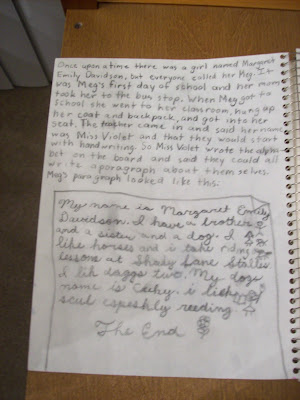 Once upon a time there was a girl named Margaret
Emily Davidson, but everyone called her Meg. It
was Meg's first day of school and her mom
took her to the bus stop. When Meg got to
school she went to her classroom, hung up
her coat and backpack, and got into her
seat. The teacher came in and said her name
was Miss Violet and that they would start
with handwriting. So Miss Violet wrote the alpha-
bet on the board and said they could all
write a paragraph about themselves.
Meg's paragraph looked like this:
My name is Margaret Emily
Davidson. I have a brother
and a sister and a dog. I
like horses and i take riding
lessons at Shady Lane Stables.
I lik doggs two. My dogs
name is i like
scul espeshly reeding.
The End